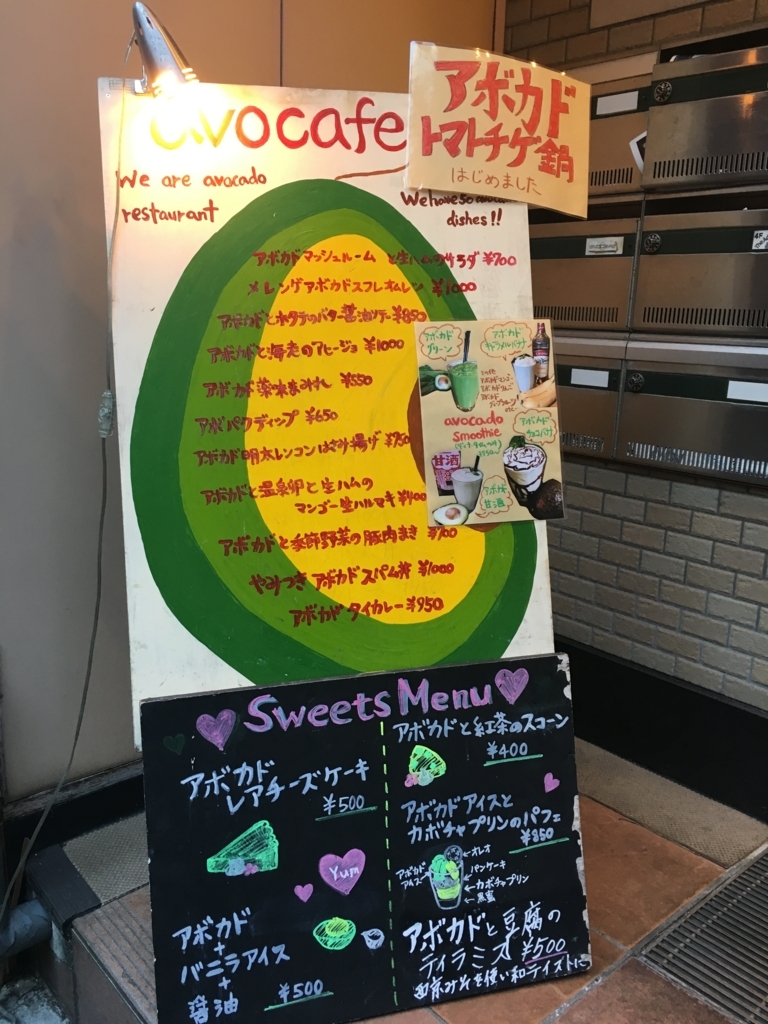 avocafe
アボカド
トマトチゲ鍋
はじめました
We are avocado
restaurant
We have 50 avocado
dishes!!
アボカドマッシュルーム と生ハムのサラダ ¥700
メレンゲアボカドスフレオムレツ ¥1000
アボカドとホタテのバター醤油ソテー ¥850
アボカドと海老のアヒージョ ¥1000
アボカド薬味まみれ ¥550
アボパクディップ ¥650
アボカド明太レンコンはさみ揚げ ¥750
アボカドと温泉卵と生ハムの
マンゴー生ハルマキ
アボカドと季節野菜の豚肉まき
やみつきアボカドスパム丼 ¥1000
アボカドタイカレー ¥950
アボカド
グリーン
アボカド
キャラメルバナナ
avocado
smoothie
アボカド
チョコバナナ
甘酒
アボカド
甘酒
Sweets Menu
アボカド
レアチーズケーキ
¥500
Yum
アボカド
+
バニラアイス
+
醤油
¥500
アボカドと紅茶のスコーン
¥400
アボカドアイスと
カボチャプリンのパフェ
¥850
オレオ
アボカド
アイス
パンケーキ
カボチャプリン
黒蜜
アボカドと豆腐の
ティラミス ¥500
西京みそを使い和テイストに